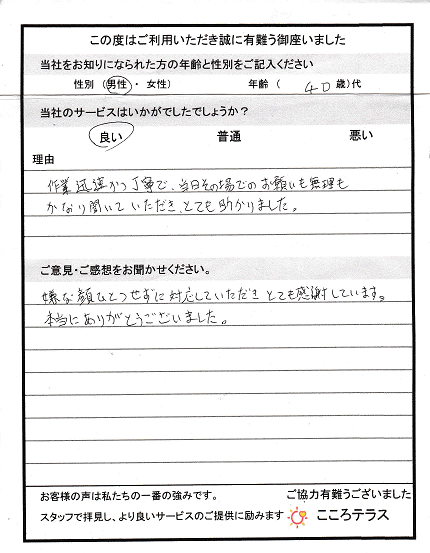 この度はご利用いただき誠に有難う御座いました
当社をお知りになられた方の年齢と性別をご記入ください
性別 (男性・ 女性) 年齢 ( 40 歳)代
当社のサービスはいかがでしたでしょうか?
良い 普通 悪い
理由
作業迅速かつ丁寧で、当日その場でのお願いも無理も
かなり聞いていただき、とても助かりました。
ご意見・ご感想をお聞かせください。
嫌な顔ひとつせずに対応していただきとても感謝しています。
本当にありがとうございました。
お客様の声は私たちの一番の強みです。 ご協力有難うございました
スタッフで拝見し、より良いサービスのご提供に励みます こころテラス